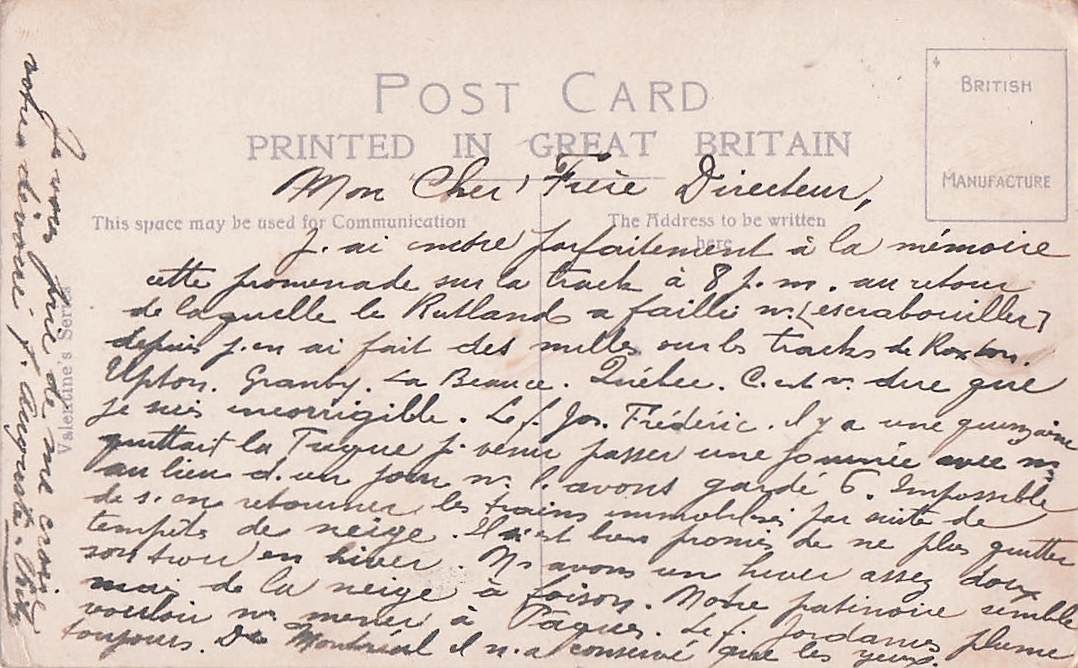 POST CARD
PRINTED IN GREAT BRITAIN
BRITISH
MANUFACTURE
This space may be used for Communication
The Address to be written
here
Valentine's Series
Mon Cher Frère Directeur,
j. ai encore parfaitement à la mémoire
cette promenade sur la track à 8 p.m. au retour
de laquelle le Rutland a failli n. [escrabouiller]
depuis j.en ai fait des milles sur les tracks de Roxton.
Upton. Granby. La Beauce. Québec. C.est v. dire que
je suis incorrigible. Le f. Jos. Frédéric. il y a une quinzaine
quittait la Tuque p. venir passer une journée avec ns
au lieu d.un jour ns l.avons gardé 6. Impossible
de s.en retourner les trains immobilisés par suite de
tempête de neige. Il s'est bien promis de ne plus quitter
son trou en hiver. Ns avons un hiver assez doux
mais de la neige à foison. Notre patinoire semble
vouloir ns mener à Pâques. Le f. Jordanes plume
toujours. De Montréal il n.a conservé que les yeux
Je vous prie de me croire
votre dévoué f.